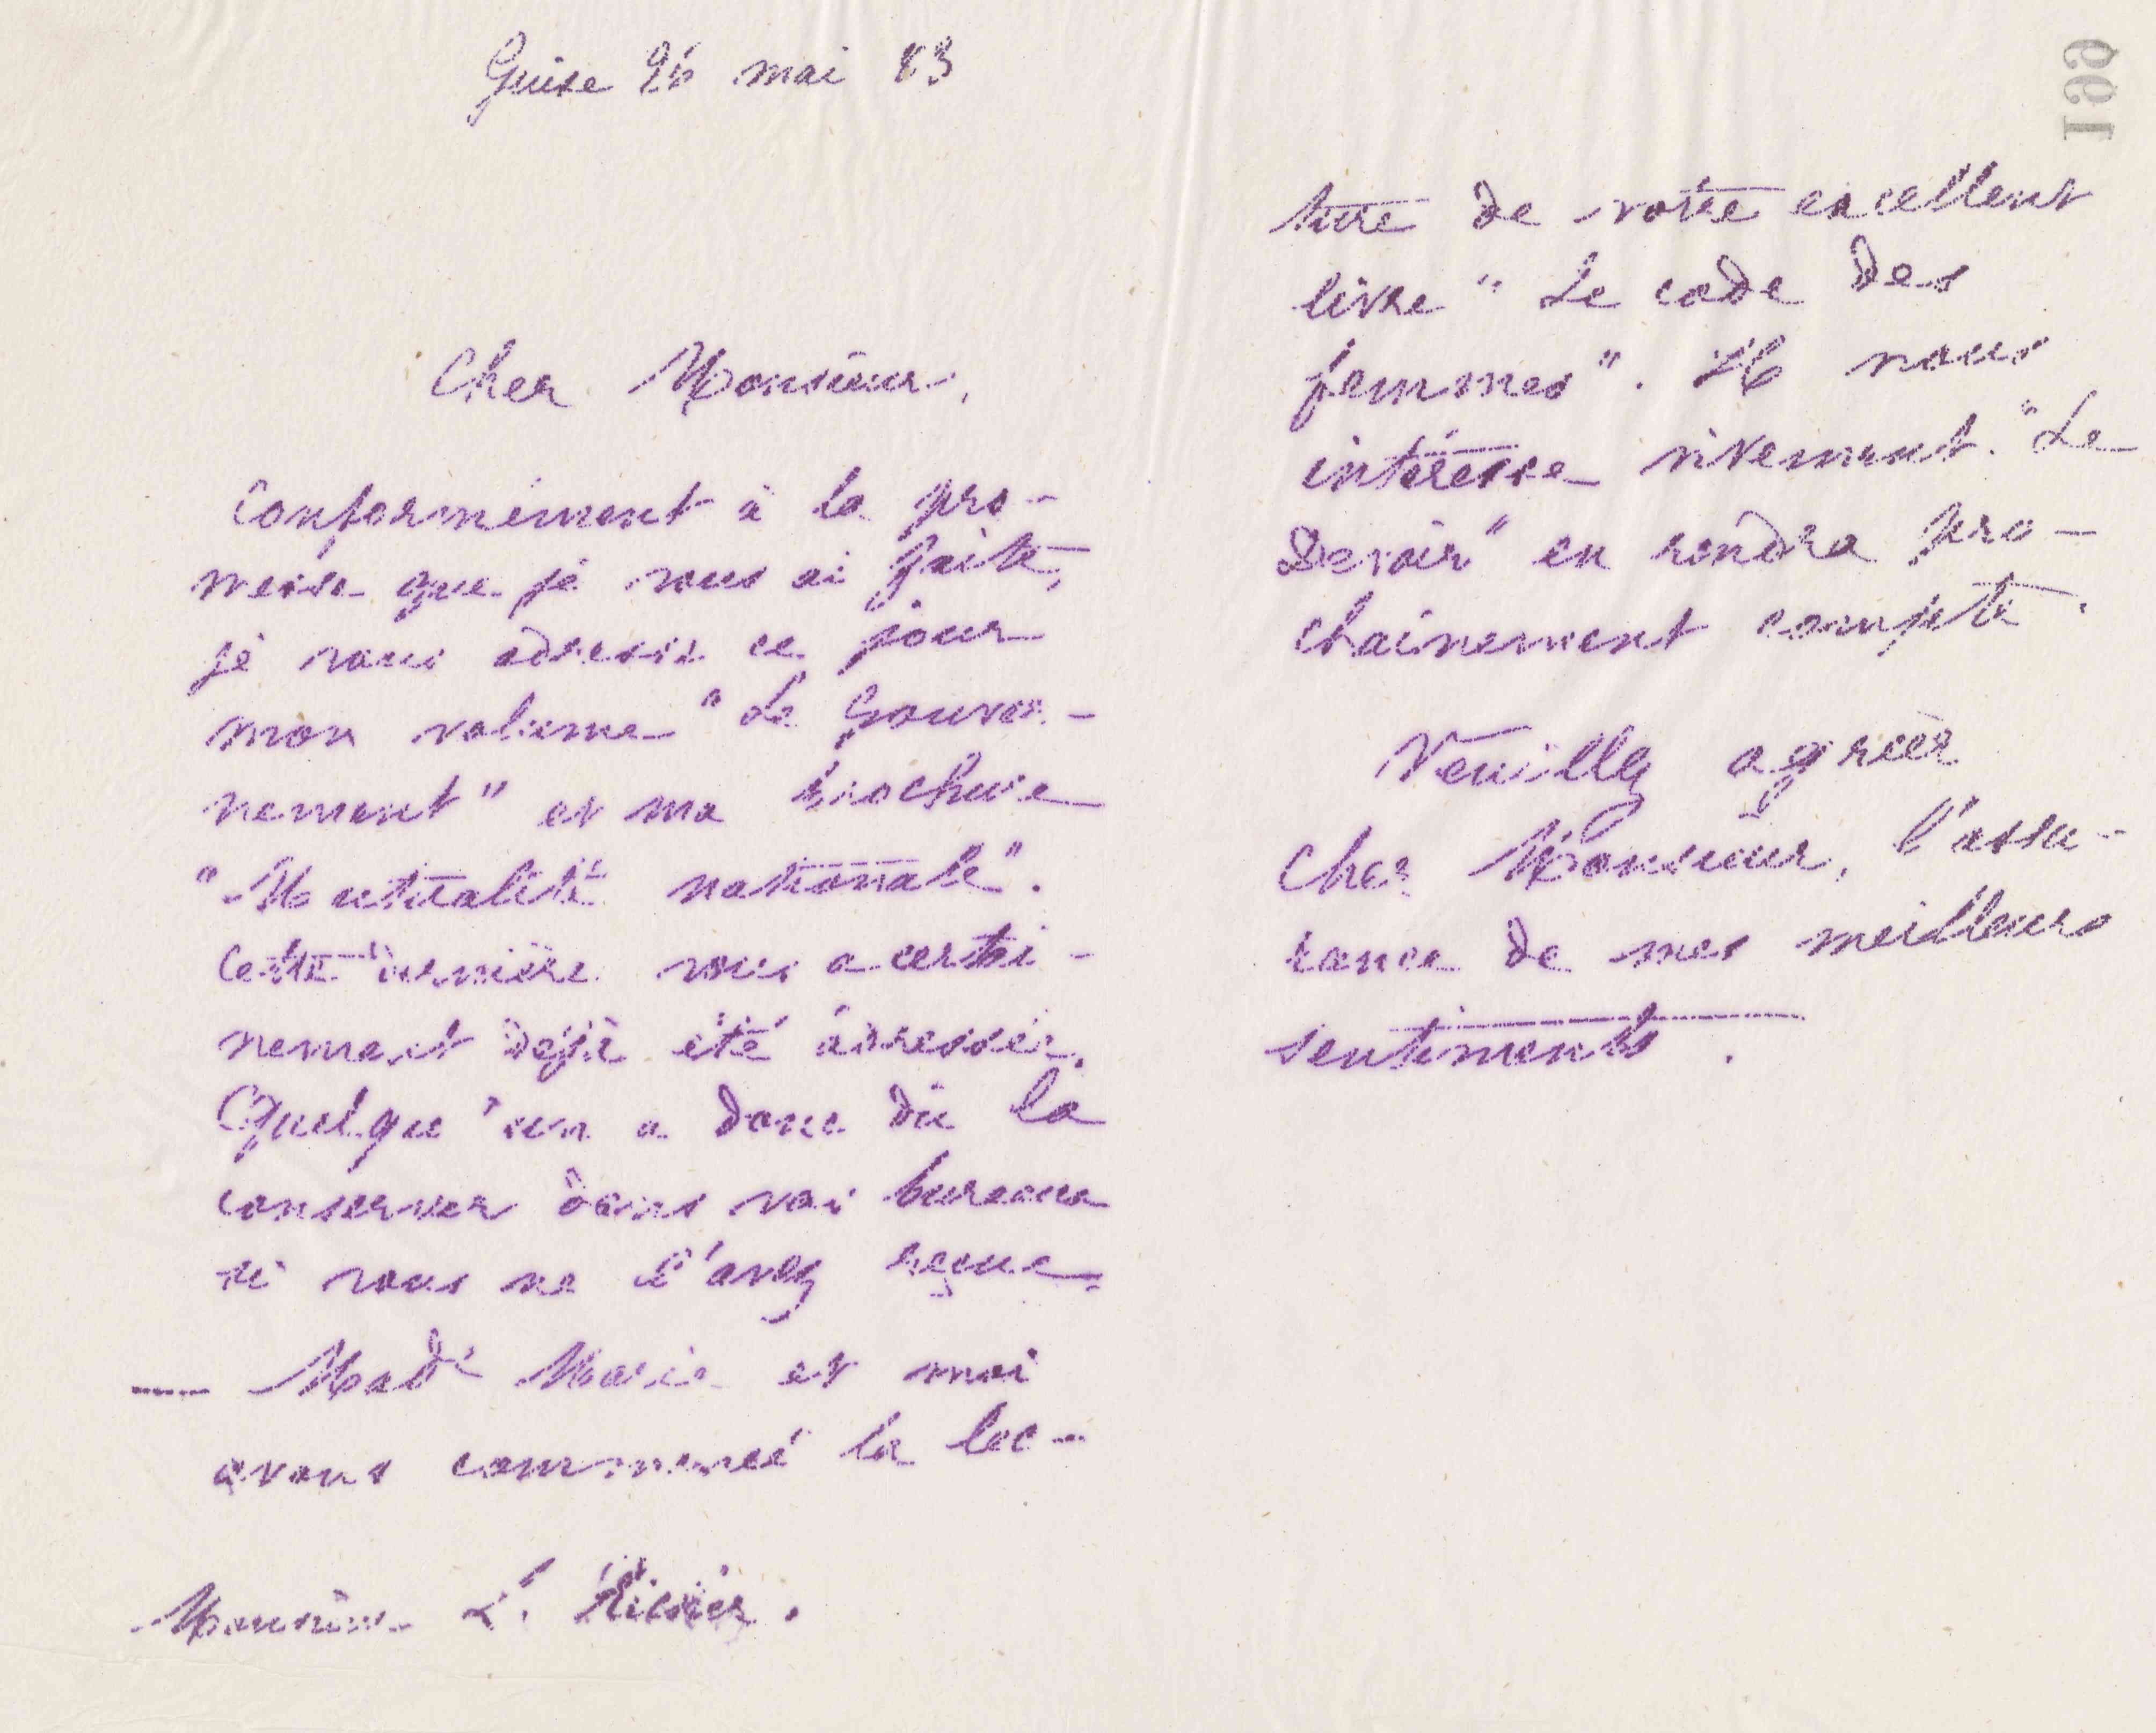 Guise 26 mai 83
Cher Monsieur,
Conformément à la pro-
messe que je vous ai faite,
je vous adresse ce jour
mon volume "Le Gouver-
nement" et ma brochure
"Mutualité nationale".
Cette dernière vous a certai-
nement déjà été adressée.
Quelqu'un a donc dû la
conserver dans vos bureaux
si vous ne l'avez reçue.
— Made Marie et moi
avons commencé la lec-
Monsieur L.
199
ture de votre excellent
livre "Le code des
femmes". Il nous
intéresse vivement. "Le
Devoir" en rendra pro-
chainement compte.
Veuillez agréer
Cher Monsieur, l'assu-
rance de mes meilleurs
sentiments.